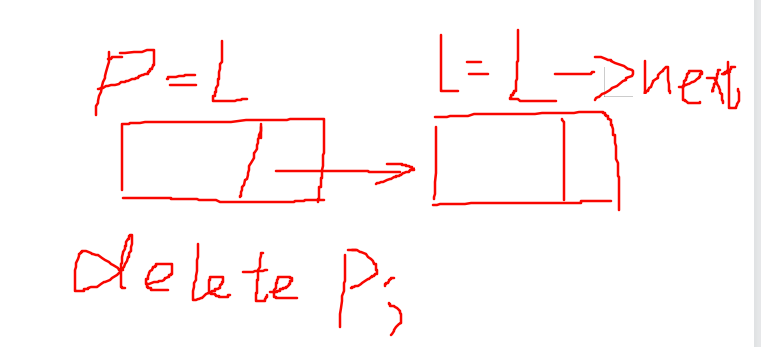 P=L
L=L->next
delete P;